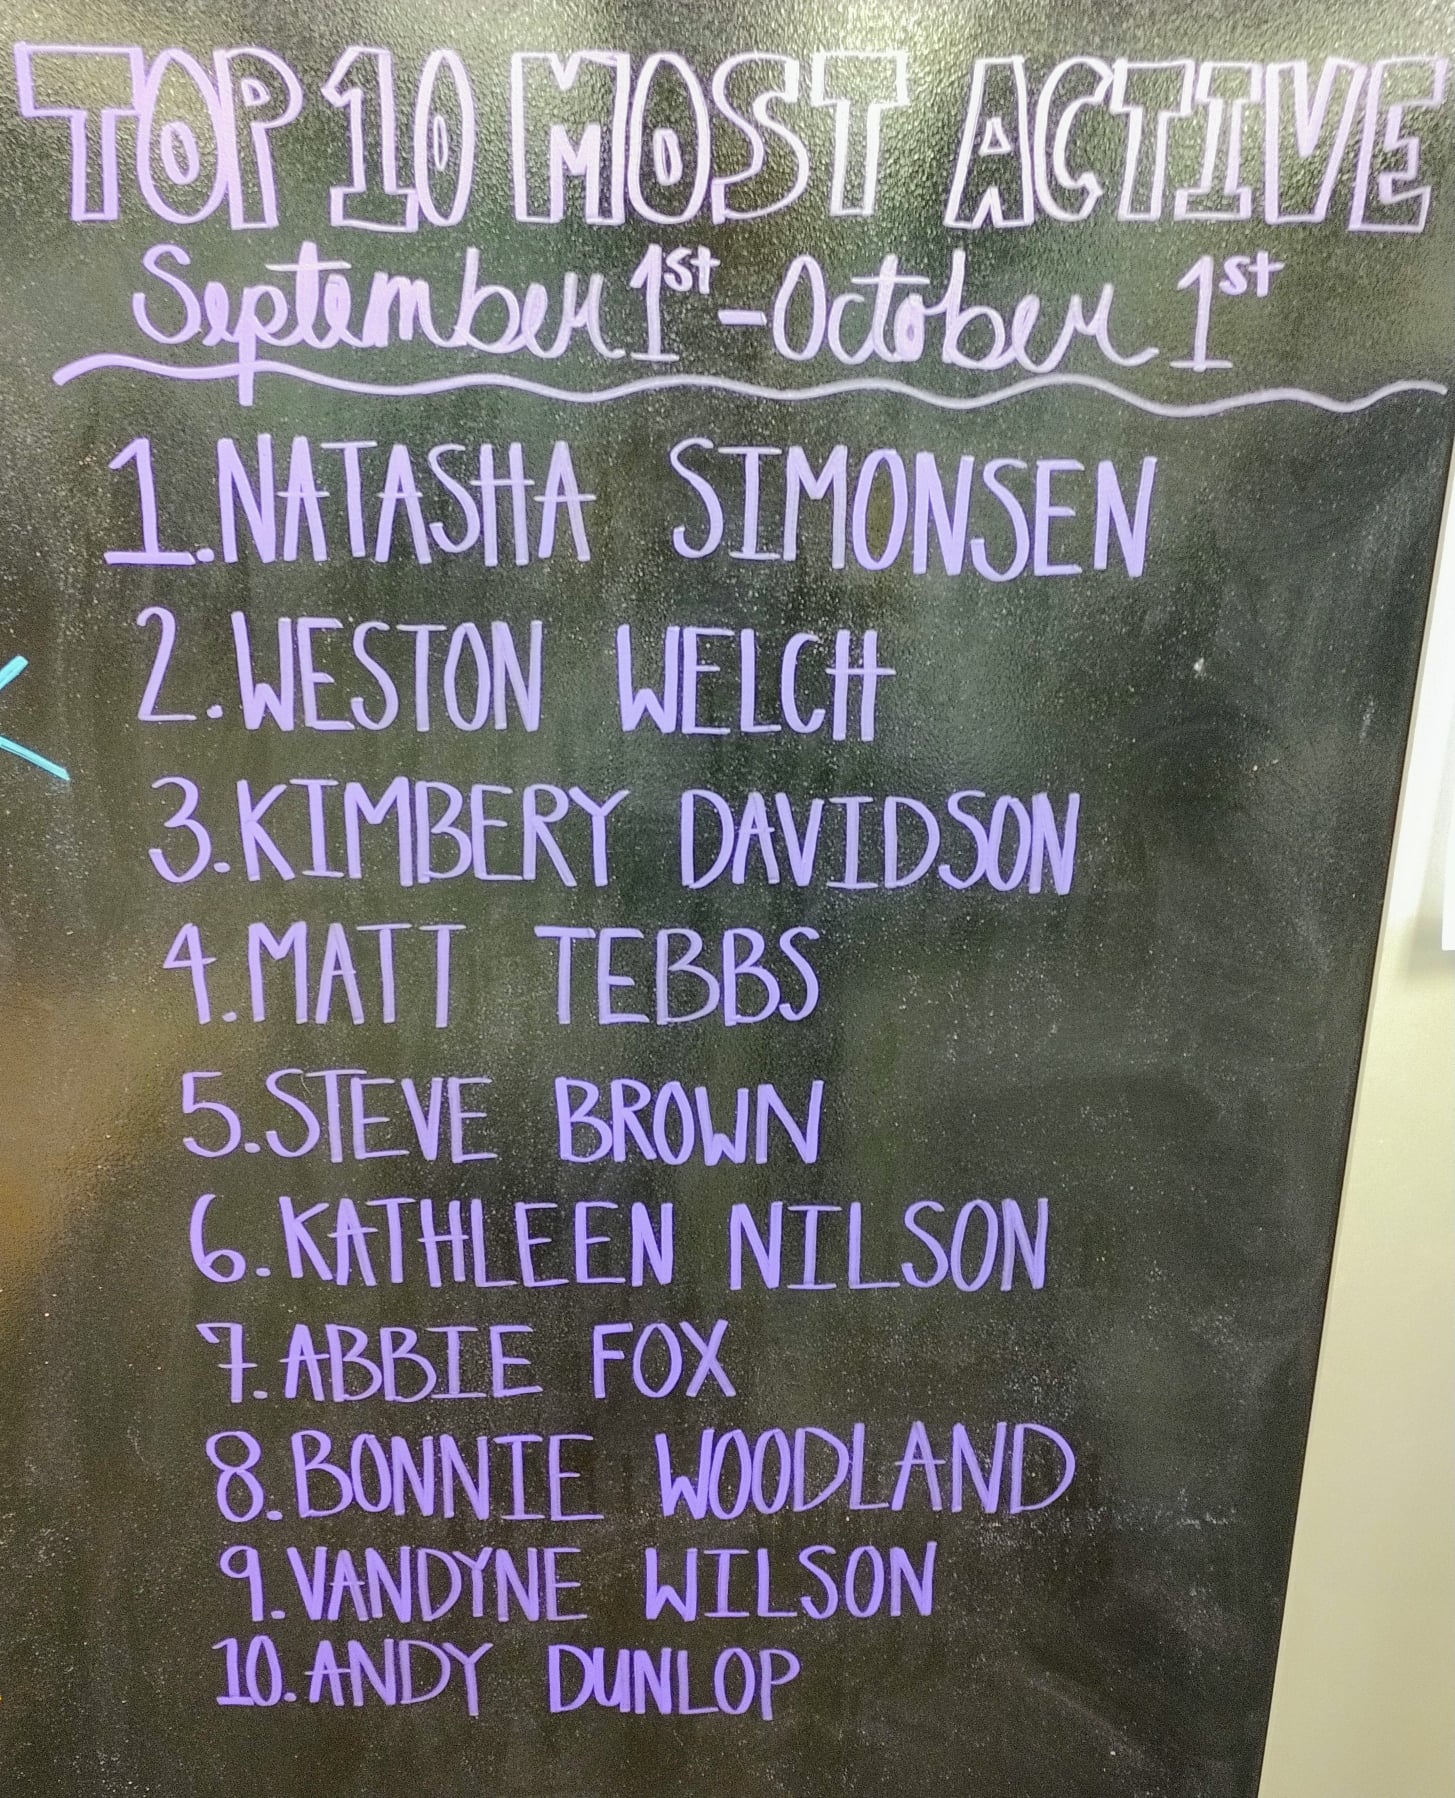 TOP 10 MOST ACTIVE
September 1st - October 1st
1. NATASHA SIMONSEN
2. WESTON WELCH
3. KIMBERY DAVIDSON
4. MATT TEBBS
5. STEVE BROWN
6. KATHLEEN NILSON
7. ABBIE FOX
8. BONNIE WOODLAND
9. VANDYNE WILSON
10. ANDY DUNLOP